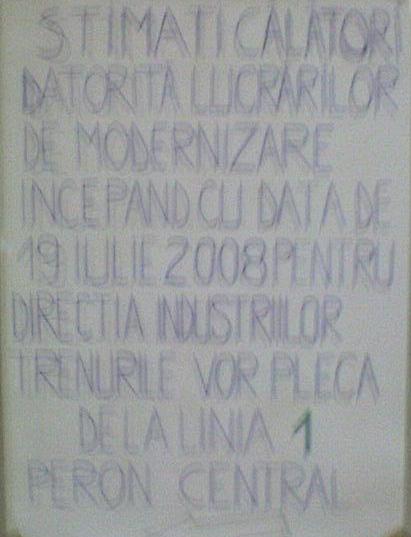 STIMATI CALATORI
DATORITA LUCRARILOR
DE MODERNIZARE
INCEPAND CU DATA DE
19 IULIE 2008 PENTRU
DIRECTIA INDUSTRIILOR
TRENURILE VOR PLECA
DE LA LINIA 1
PERON CENTRAL